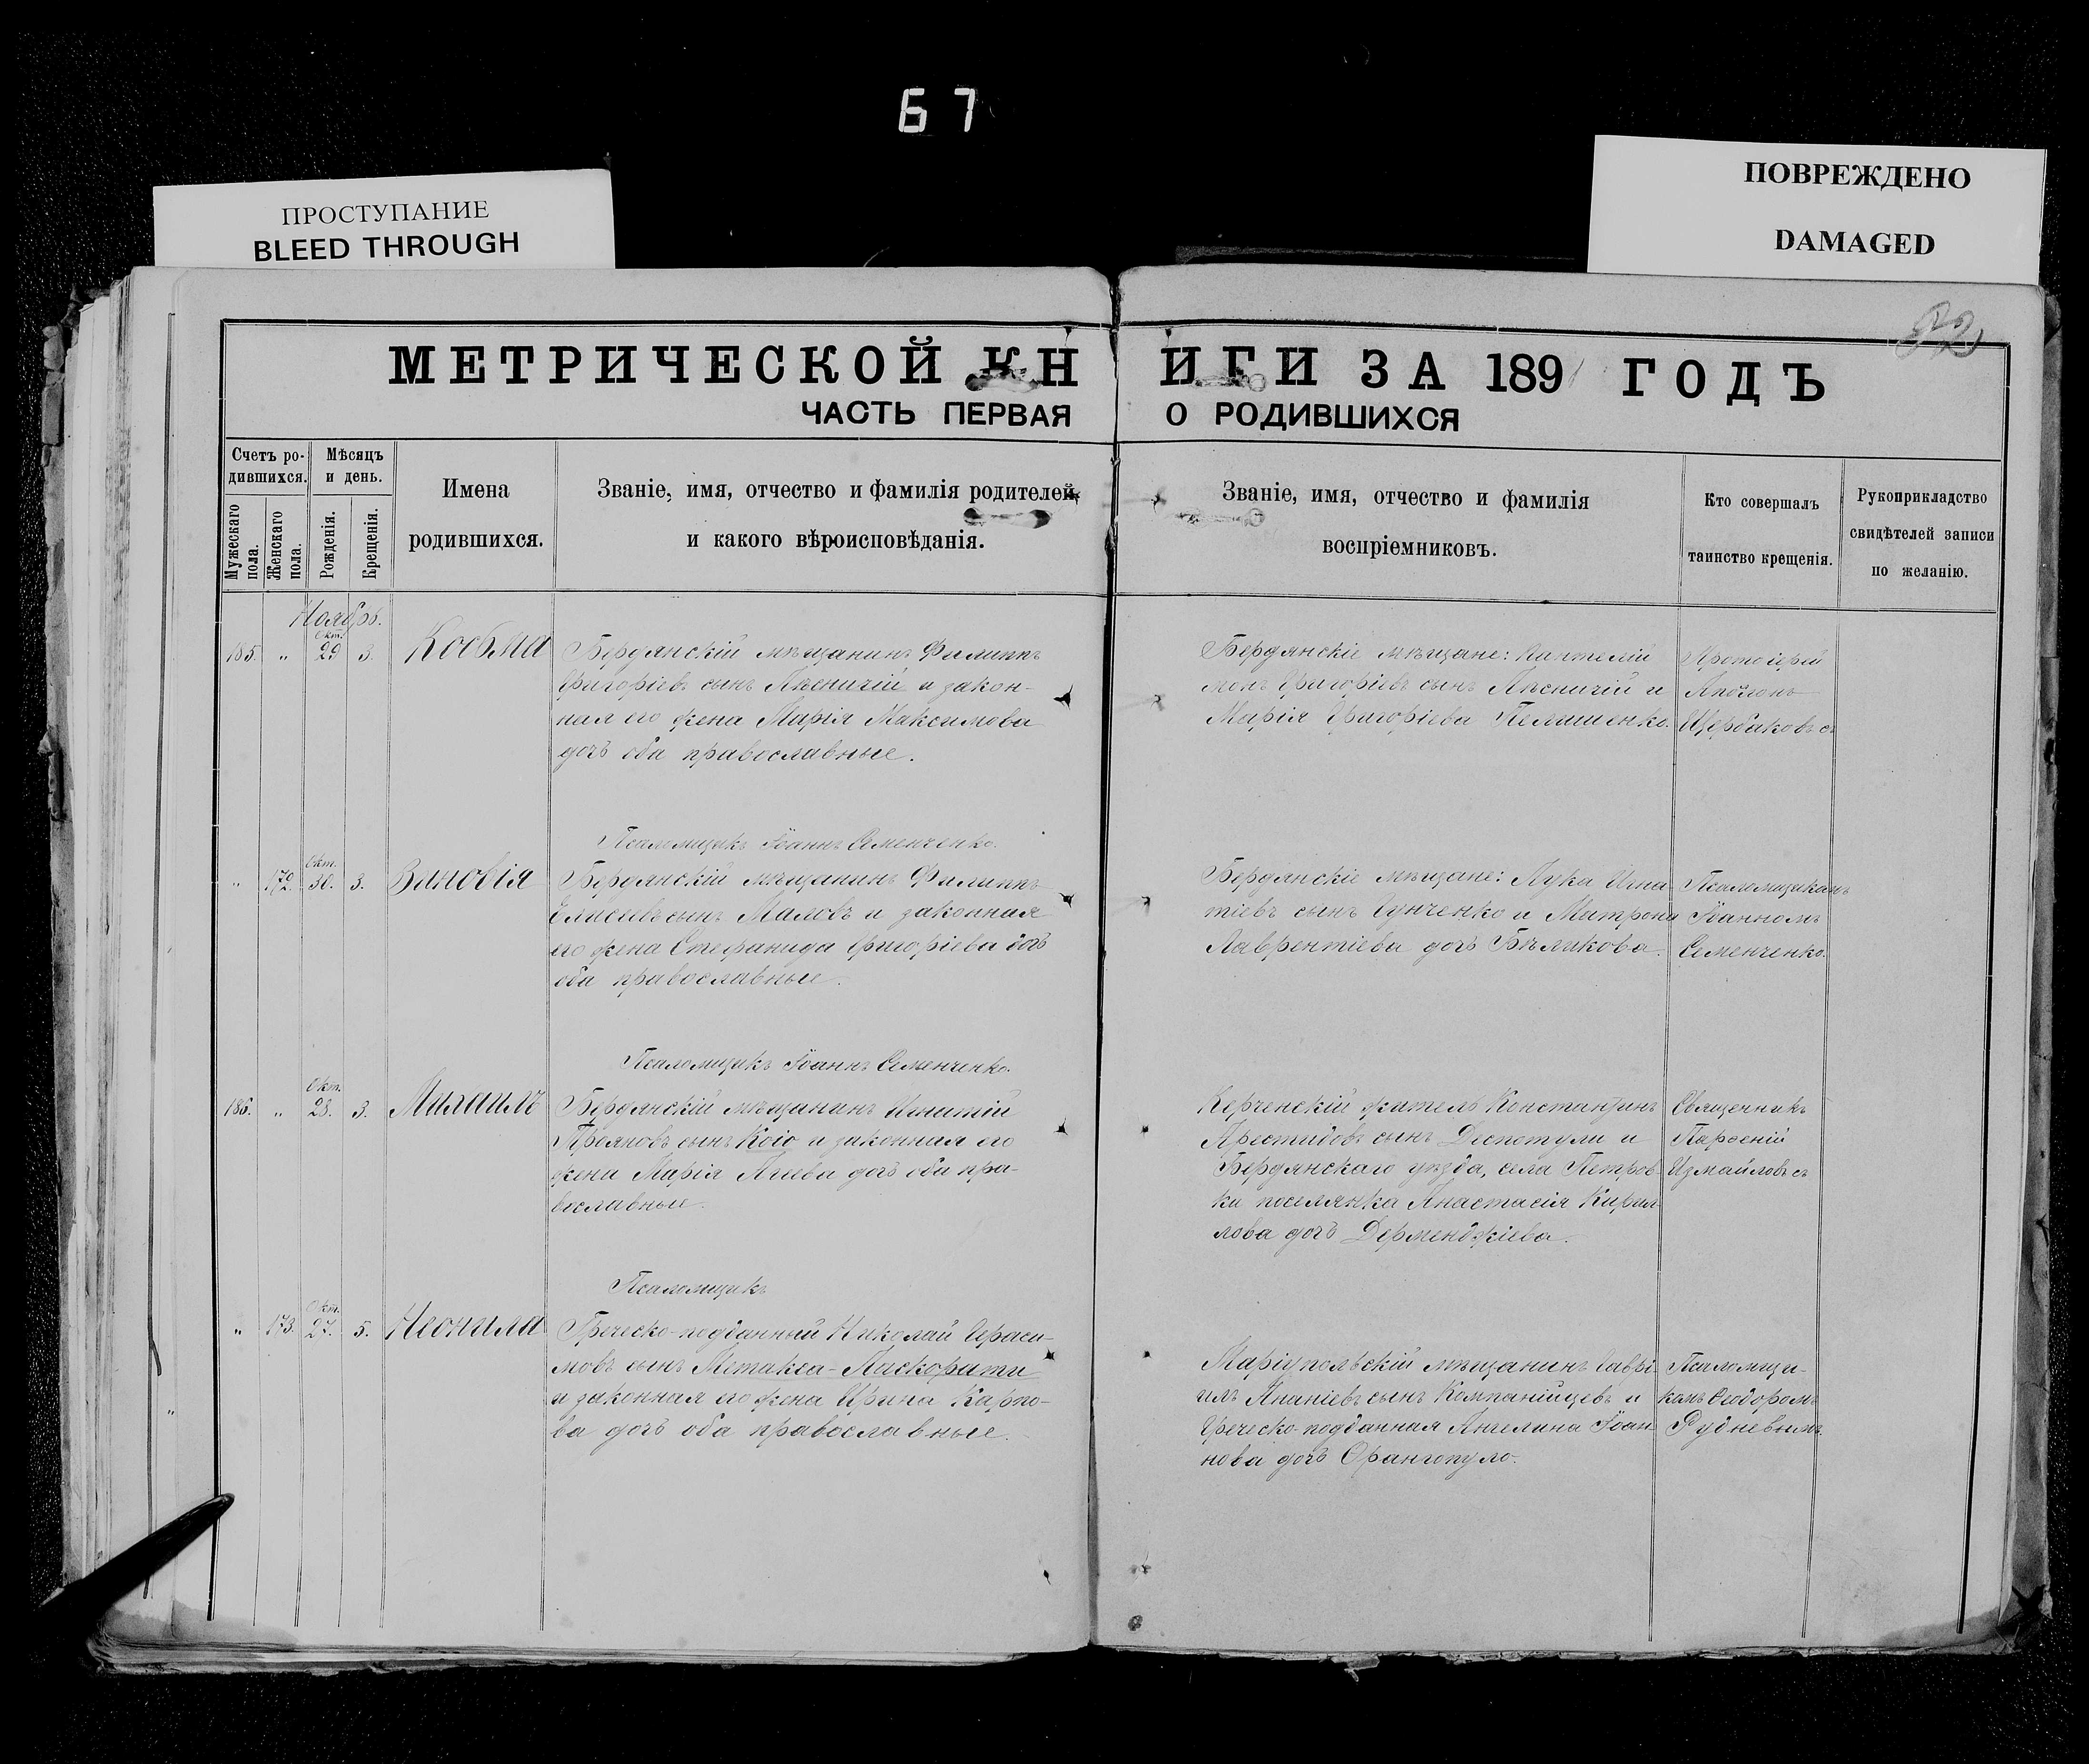 67
ПРОСТУПАНИЕ
BLEED THROUGH
ПОВРЕЖДЕНО
DAMAGED
52
МЕТРИЧЕСКОЙ КНИГИ ЗА 1891 ГОДЪ
ЧАСТЬ ПЕРВАЯ О РОДИВШИХСЯ
Счетъ ро-
дившихся.
Мужескаго пола.
Женскаго пола.
Мѣсяцъ
и день.
Рожденія.
Крещенія.
Имена
родившихся.
Званіе, имя, отчество и фамилія родителей
и какого вѣроисповѣданія.
Званіе, имя, отчество и фамилія
воспріемниковъ.
Кто совершалъ
таинство крещенія.
Рукоприкладство
свидѣтелей записи
по желанію.
Ноябрь.
185. " Окт. 29 3. Косьма
Бердянскій мѣщанинъ Филиппъ
Григоріевъ сынъ Лѣсничій и закон-
ная его жена Марія Максимова
дочь оба православные.
Бердянскіе мѣщане: Пантелій
монъ Григоріевъ сынъ Лѣсничій и
Марія Григоріева
Протоіерей
Аполлонъ
Щербаковъ съ
Псаломщикъ Іоаннъ Семенченко.
" 172. Окт. 30. 3. Зиновія
Бердянскій мѣщанинъ Филиппъ
Елисѣевъ сынъ Маловъ и законная
его жена Стефанида Григоріева дочь
оба православные.
Бердянскіе мѣщане: Лука Игна
тіевъ сынъ Сунченко и Матрона
Лаврентіева дочь Бѣликова.
Псаломщикомъ
Іоанномъ
Семенченко.
Псаломщикъ Іоаннъ Семенченко.
186. " Окт. 28. 3. Михаилъ
Бердянскій мѣщанинъ Игнатій
Трояновъ сынъ Койо и законная его
жена Марія Ильева дочь оба пра-
вославные.
Керченскій житель Константинъ
Арестидовъ сынъ Деспотули и
Бердянскаго уѣзда, села Петров
ки поселянка Анастасія Кирил
лова дочь Дерменджіева.
Священникъ
Парѳеній
Измайловъ съ
Псаломщикъ
" 173. Окт. 27. 5. Неонила
Греческо-подданный Николай Гераси-
мовъ сынъ Метакса-Ласкорати
и законная его жена Ирина Карпо-
ва дочь оба православные.
Маріупольскій мѣщанинъ Гаврі-
илъ Ананіевъ сынъ Компанійцевъ и
Греческо-подданная Ангелина Іоан
нова дочь Франгопуло.
Псаломщи-
комъ Ѳеодоромъ
Рудневымъ.